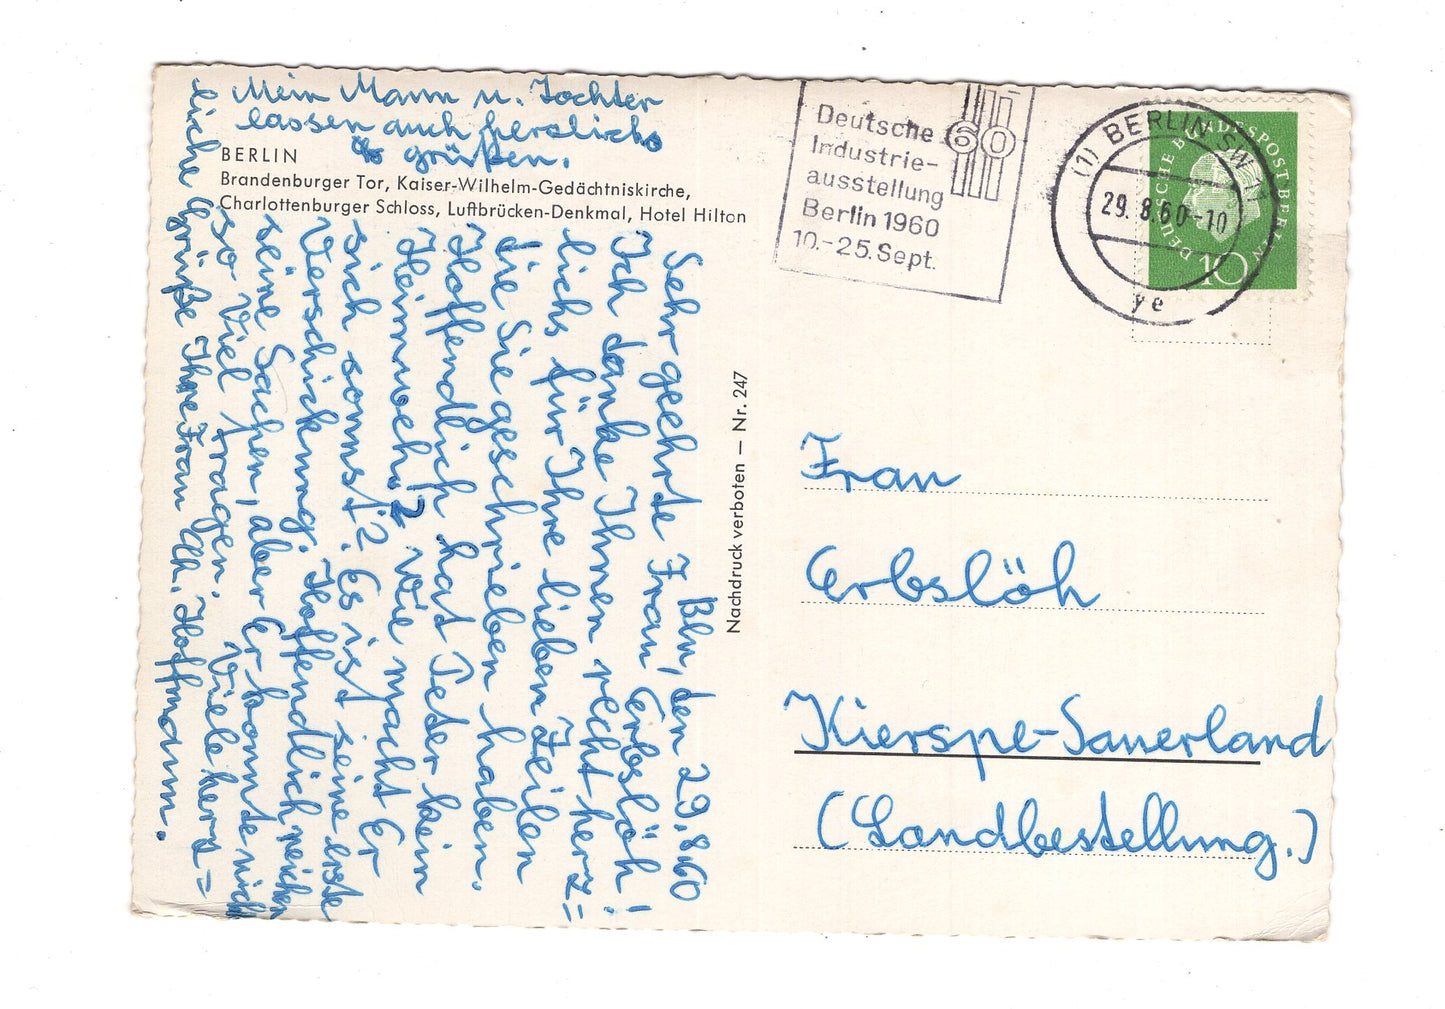 Mein Mann u. Tochter
lassen auch herzlichs
grüßen.
BERLIN
Brandenburger Tor, Kaiser-Wilhelm-Gedächtniskirche,
Charlottenburger Schloss, Luftbrücken-Denkmal, Hotel Hilton
Bln, den 29.8.60
Sehr geehrte Frau Erbslöh!
Ich danke Ihnen recht herz=
lichs für Ihre lieben Zeilen
die Sie geschrieben haben.
Hoffendlich hat Peter kein
Heimweh? Wie macht Er
sich sonnst? Es ist seine erste
Verschickung. Hoffendlich reichen
seine Sachen, aber Er konnte nicht
so viel tragen. Viele herz=
liche Grüße Ihre Frau Ch. Hoffmann.
Nachdruck verboten — Nr. 247
Deutsche
Industrie-
ausstellung
Berlin 1960
10.-25. Sept.
60
(1) BERLIN SW 11
29. 8.60-10
ye
DEUTSCHE BUNDESPOST BERLIN
10
Frau
Erbslöh
Kierspe-Sauerland
(Landbestellung.)